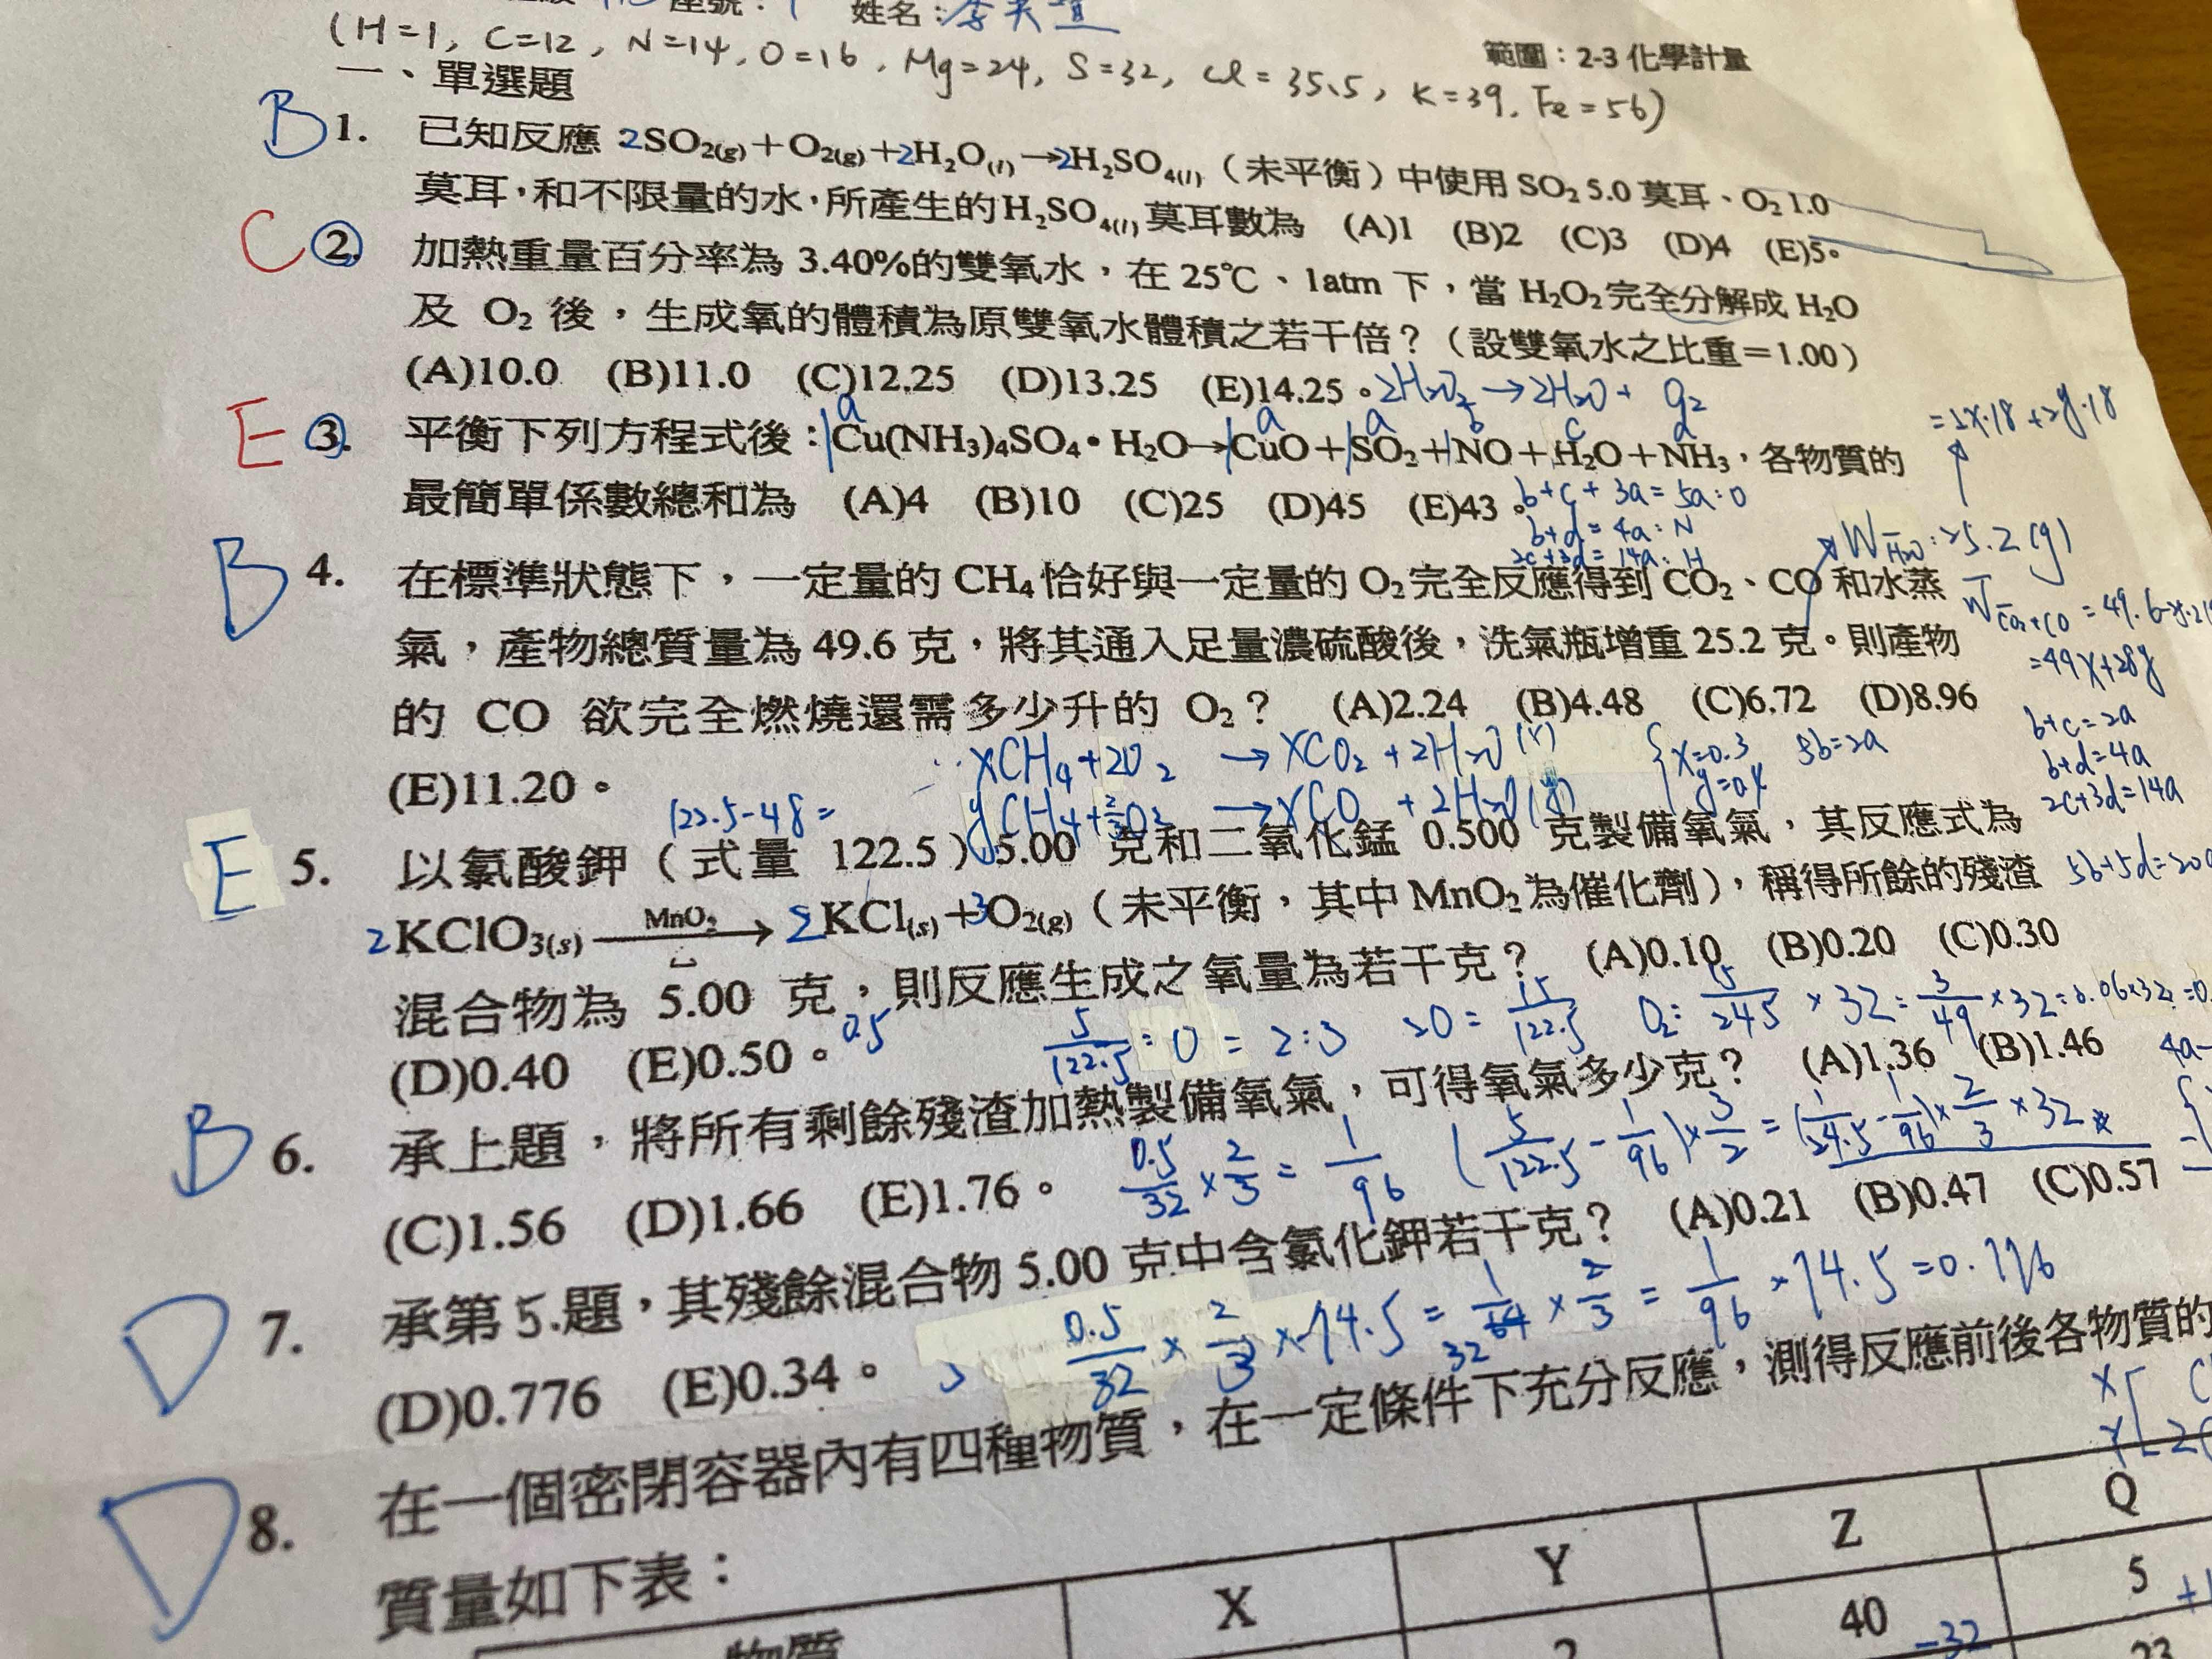 座號：1 姓名：
(H=1, C=12, N=14, O=16, Mg=24, S=32, Cl=35.5, K=39, Fe=56)
範圍：2-3 化學計量
一、單選題
B 1. 已知反應 2SO2(g)＋O2(g)＋2H2O(l)→2H2SO4(l)（未平衡）中使用 SO2 5.0 莫耳、O2 1.0
莫耳，和不限量的水，所產生的H2SO4(l)莫耳數為 (A)1 (B)2 (C)3 (D)4 (E)5。
C ② 加熱重量百分率為 3.40%的雙氧水，在 25℃、1atm 下，當 H2O2完全分解成 H2O
及 O2 後，生成氧的體積為原雙氧水體積之若干倍？（設雙氧水之比重＝1.00）
(A)10.0 (B)11.0 (C)12.25 (D)13.25 (E)14.25。 2H2O2 → 2H2O + O2
a a a b c d
=2x·18+2y·18
E ③ 平衡下列方程式後：1Cu(NH3)4SO4•H2O→1CuO＋1SO2＋NO＋H2O＋NH3，各物質的
最簡單係數總和為 (A)4 (B)10 (C)25 (D)45 (E)43。
b+c+3a=5a:O
b+d=4a:N
2c+3d=14a:H
W H2O:25.2(g)
B 4. 在標準狀態下，一定量的 CH4 恰好與一定量的 O2 完全反應得到 CO2、CO 和水蒸
氣，產物總質量為 49.6 克，將其通入足量濃硫酸後，洗氣瓶增重 25.2 克。則產物
W CO2+CO = 49.6-
=44x+28y
的 CO 欲完全燃燒還需多少升的 O2？ (A)2.24 (B)4.48 (C)6.72 (D)8.96
(E)11.20。
xCH4+2O2 → xCO2+2H2O
x=0.3
y=0.4
5b=2a
b+c=2a
b+d=4a
2c+3d=14a
122.5-48=
E 5. 以氯酸鉀（式量 122.5）5.00 克和二氧化錳 0.500 克製備氧氣，其反應式為
2KClO3(s) MnO2→ 2KCl(s)＋3O2(g)（未平衡，其中 MnO2 為催化劑），稱得所餘的殘渣
混合物為 5.00 克，則反應生成之氧量為若干克？ (A)0.10 (B)0.20 (C)0.30
(D)0.40 (E)0.50。 0.5
5/122.5 : O = 2:3 2O = 15/122.5 O2: 15/245 × 32 = 3/49 × 32 = 0.06×32
B 6. 承上題，將所有剩餘殘渣加熱製備氧氣，可得氧氣多少克？ (A)1.36 (B)1.46
(C)1.56 (D)1.66 (E)1.76。
0.5/32 × 2/3 = 1/96 (5/122.5 - 1/96)×3/2 = (1/24.5 - 1/96)×2/3×32
D 7. 承第5.題，其殘餘混合物 5.00 克中含氯化鉀若干克？ (A)0.21 (B)0.47 (C)0.57
(D)0.776 (E)0.34。
0.5/32 × 2/3 × 74.5 = × 2/3 = 1/96 × 74.5 = 0.776
D 8. 在一個密閉容器內有四種物質，在一定條件下充分反應，測得反應前後各物質的
質量如下表：
物質 X Y Z Q
2 40 5
-32
23